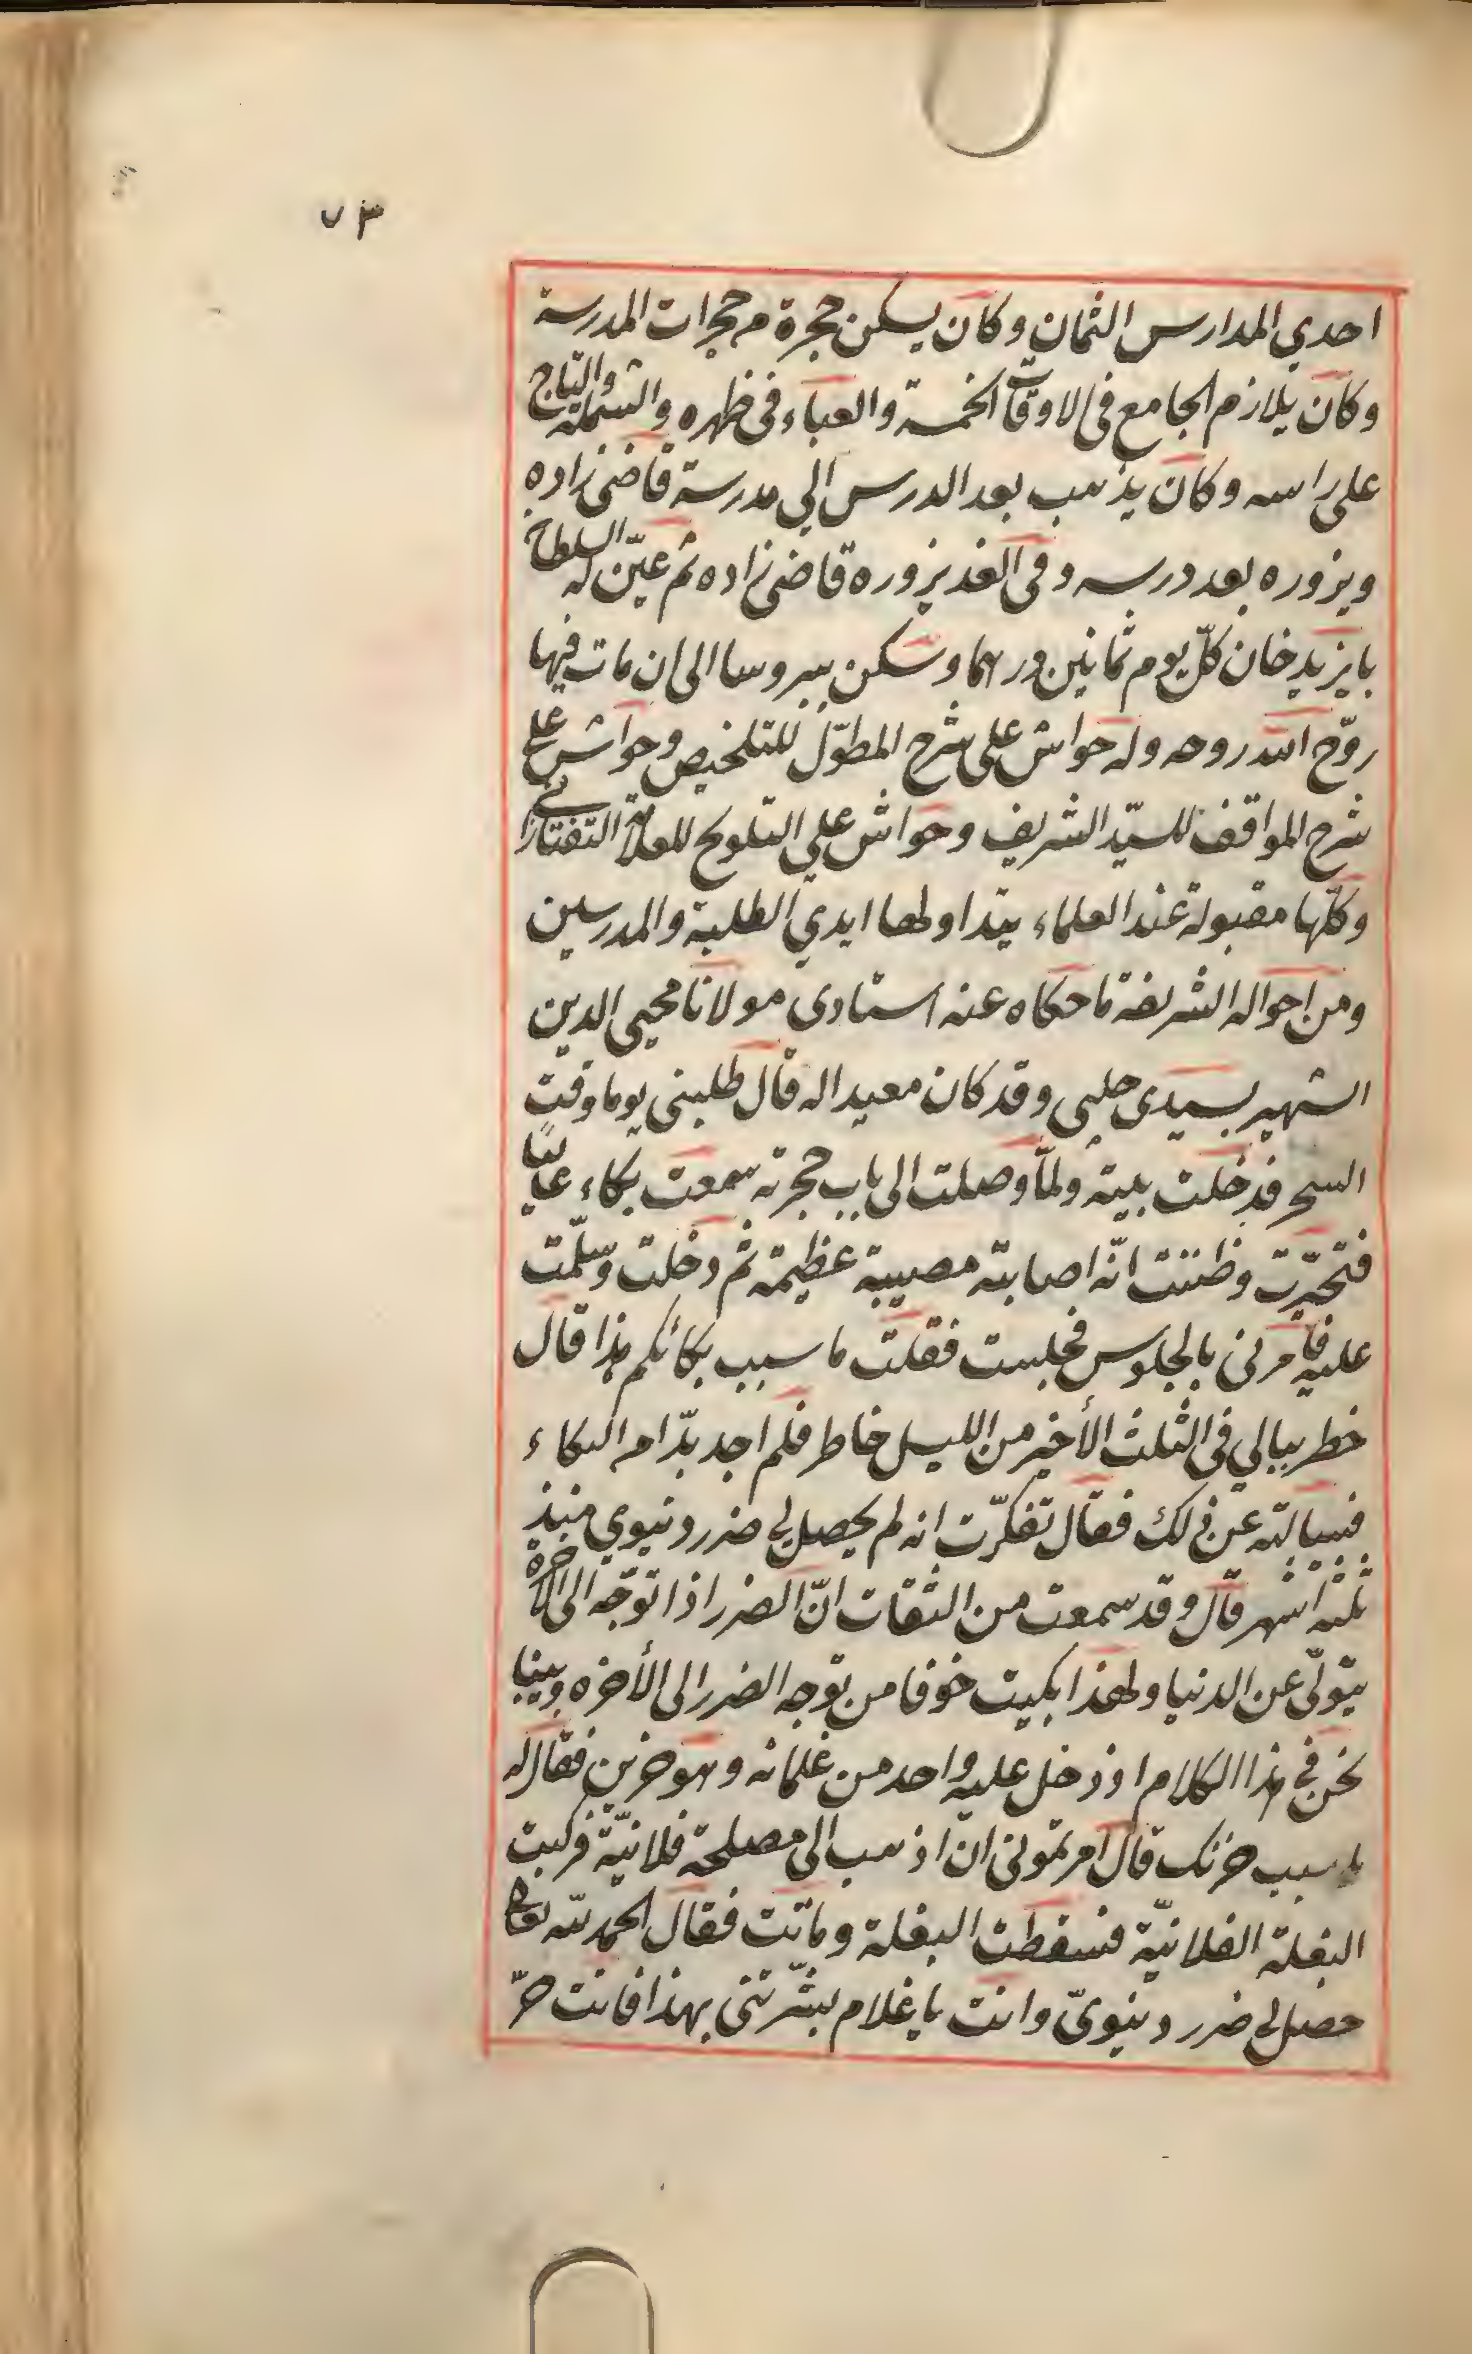 ٧٣
احدي المدارس الثمان وكان يسكن حجرة م حجرات المدرسة
وكان يلازم الجامع فى الاوقات الخمسة والعباء فى ظهره والشملة والتاج
على راسه وكان يذهب بعد الدرس الي مدرسة قاضى زاده
ويزوره بعد درسه وفى الغد يزوره قاضى زاده ثم عيّن له السلطان
بايزيد خان كلّ يوم ثمانين درهما وسكن ببروسا الى ان مات فيها
روّح الله روحه وله حواش على شرح المطوّل للتلخيص وحواش على
شرح المواقف للسيّد الشريف وحواش علي التلويح للعلامة التفتازانى
وكلّها مقبولة عند العلماء يتداولها ايدي الطلبة والمدرسين
ومن احواله الشريفة ما حكاه عنه استادى مولانا محيى الدين
الشهير بسيدى جلبى وقد كان معيدا له قال طلبنى يوما وقت
السحر فدخلت بيته ولمّا وصلت الى باب حجرته سمعت بكاء عاليا
فتحيّرت وظننت انّه اصابته مصيبة عظيمة ثم دخلت وسلّمت
عليه فأمرنى بالجلوس فجلست فقلت ما سبب بكائكم هذا قال
خطر ببالي فى الثلث الأخير من الليل خاطر فلم اجد بدّا م البكاء
فسالته عن ذلك فقال تفكّرت انه لم يحصل لى ضرر دنيوي منذ
ثلثة اشهر قال وقد سمعت من الثقات انّ الضرر اذا توجّه الى الآخرة
يتولّى عن الدنيا ولهذا بكيت خوفا من توجه الضرر الى الأخره وبينا
نحن فى هذا الكلام اذ دخل عليه واحد من غلمانه وهو حزين فقال له
ما سبب حزنك قال امرتمونى ان اذهب الى مصلحة فلانيّة فركبت
البغلة الفلانيّة فسقطت البغلة وماتت فقال الحمد لله تعالى
حصل لى ضرر دنيويّ وانت يا غلام بشّرتنى بهذا فانت حرّ